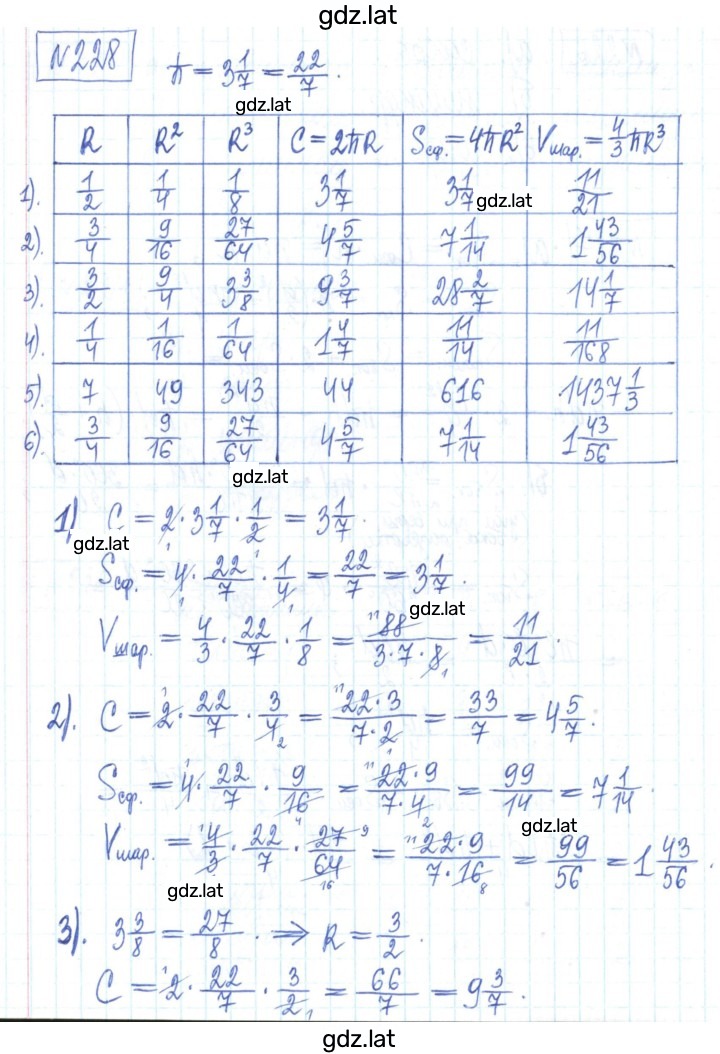 gdz.lat
№228
π = 3 1/7 = 22/7.
gdz.lat
R | R² | R³ | C = 2πR | Sсф. = 4πR² | Vшар. = 4/3 πR³
1). 1/2 | 1/4 | 1/8 | 3 1/7 | 3 1/7 | 11/21
gdz.lat
2). 3/4 | 9/16 | 27/64 | 4 5/7 | 7 1/14 | 1 43/56
3). 3/2 | 9/4 | 3 3/8 | 9 3/7 | 28 2/7 | 14 1/7
4). 1/4 | 1/16 | 1/64 | 1 4/7 | 11/14 | 11/168
5). 7 | 49 | 343 | 44 | 616 | 1437 1/3
6). 3/4 | 9/16 | 27/64 | 4 5/7 | 7 1/14 | 1 43/56
gdz.lat
1) C = 2 · 3 1/7 · 1/2 = 3 1/7.
gdz.lat
Sсф. = 4 · 22/7 · 1/4 = 22/7 = 3 1/7.
gdz.lat
Vшар. = 4/3 · 22/7 · 1/8 = 88/(3·7·8) = 11/21.
2). C = 2 · 22/7 · 3/4 = (22·3)/(7·2) = 33/7 = 4 5/7.
Sсф. = 4 · 22/7 · 9/16 = (22·9)/(7·4) = 99/14 = 7 1/14.
gdz.lat
Vшар. = 4/3 · 22/7 · 27/64 = (22·9)/(7·16) = 99/56 = 1 43/56.
gdz.lat
3). 3 3/8 = 27/8. ⇒ R = 3/2.
C = 2 · 22/7 · 3/2 = 66/7 = 9 3/7.
gdz.lat